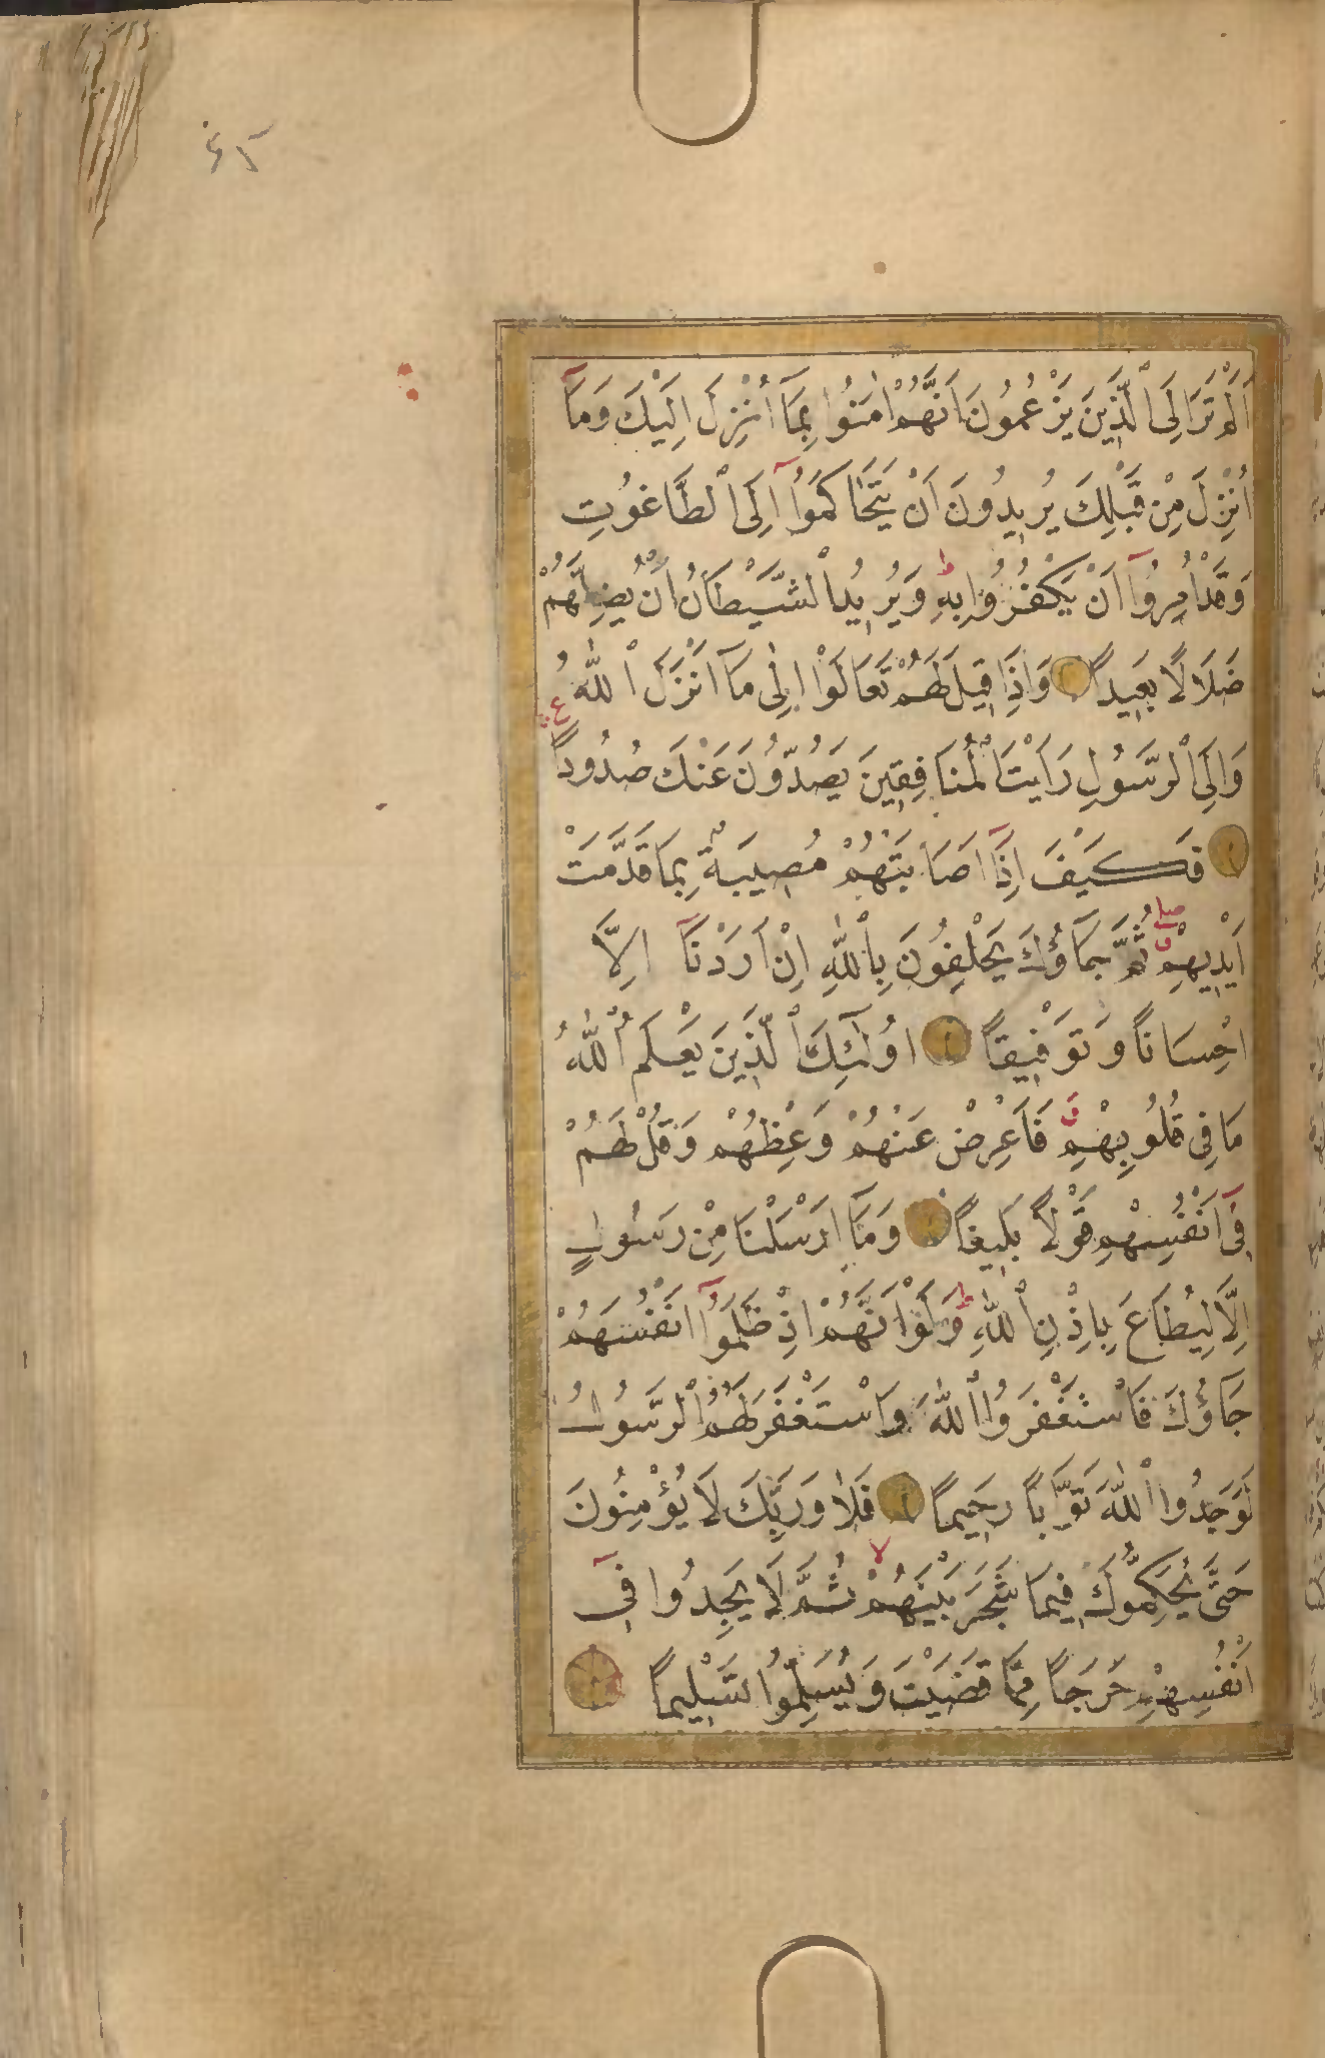 اَلَمْ تَرَ اِلَى الَّذِينَ يَزْعُمُونَ اَنَّهُمْ اٰمَنُوا بِمَآ اُنْزِلَ اِلَيْكَ وَمَآ
اُنْزِلَ مِنْ قَبْلِكَ يُرِيدُونَ اَنْ يَتَحَاكَمُوٓا اِلَى الطَّاغُوتِ
وَقَدْ اُمِرُوٓا اَنْ يَكْفُرُوا بِهِ ط وَيُرِيدُ الشَّيْطَانُ اَنْ يُضِلَّهُمْ
ضَلَالًا بَعِيدًا وَاِذَا قِيلَ لَهُمْ تَعَالَوْا اِلٰى مَآ اَنْزَلَ اللّٰهُ
وَاِلَى الرَّسُولِ رَاَيْتَ الْمُنَافِقِينَ يَصُدُّونَ عَنْكَ صُدُودًا ع
فَكَيْفَ اِذَآ اَصَابَتْهُمْ مُصِيبَةٌ بِمَا قَدَّمَتْ
اَيْدِيهِمْ ثُمَّ جَاؤُكَ يَحْلِفُونَ بِاللّٰهِ اِنْ اَرَدْنَآ اِلَّا
اِحْسَانًا وَتَوْفِيقًا اُولٰٓئِكَ الَّذِينَ يَعْلَمُ اللّٰهُ
مَا فِى قُلُوبِهِمْ فَاَعْرِضْ عَنْهُمْ وَعِظْهُمْ وَقُلْ لَهُمْ
فِىٓ اَنْفُسِهِمْ قَوْلًا بَلِيغًا وَمَآ اَرْسَلْنَا مِنْ رَسُولٍ
اِلَّا لِيُطَاعَ بِاِذْنِ اللّٰهِ ط وَلَوْ اَنَّهُمْ اِذْ ظَلَمُوٓا اَنْفُسَهُمْ
جَاؤُكَ فَاسْتَغْفَرُوا اللّٰهَ وَاسْتَغْفَرَ لَهُمُ الرَّسُولُ
لَوَجَدُوا اللّٰهَ تَوَّابًا رَحِيمًا فَلَا وَرَبِّكَ لَا يُؤْمِنُونَ
حَتّٰى يُحَكِّمُوكَ فِيمَا شَجَرَ بَيْنَهُمْ لا ثُمَّ لَا يَجِدُوا فِىٓ
اَنْفُسِهِمْ حَرَجًا مِمَّا قَضَيْتَ وَيُسَلِّمُوا تَسْلِيمًا